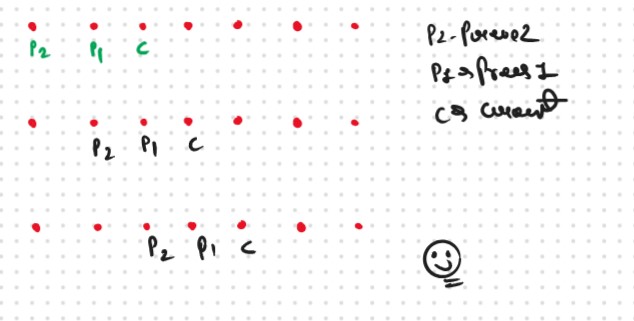 P2 P1 C
P2 P1 C
P2 P1 C
P2 - Preve2
P1 → Prev 1
C → Current